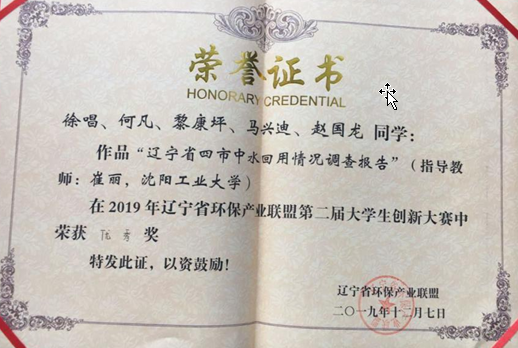 荣誉证书
HONORARY CREDENTIAL
徐唱、何凡、黎康坪、马兴迪、赵国龙 同学：
作品“辽宁省四市中水回用情况调查报告”（指导教
师：崔丽，沈阳工业大学）
在2019年辽宁省环保产业联盟第二届大学生创新大赛中
荣获 优秀 奖
特发此证，以资鼓励！
辽宁省环保产业联盟
二〇一九年十二月七日